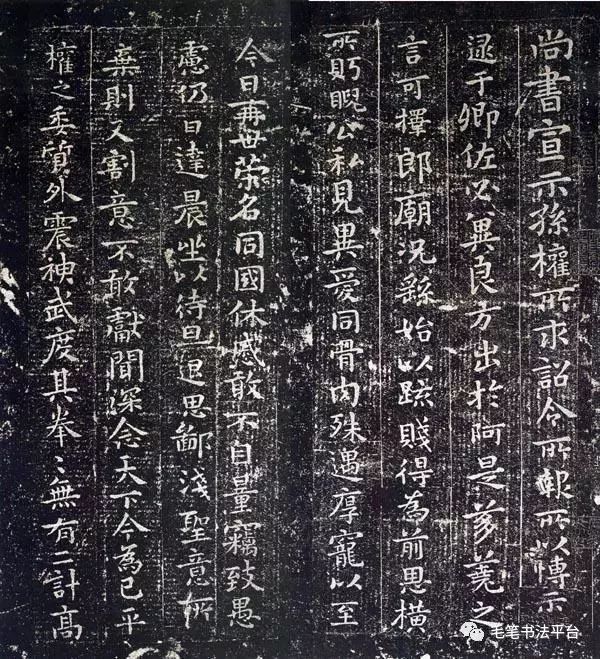 尚書宣示孫權所求詔令所報所以博示
逮于卿佐必冀良方出於阿是芻蕘之
言可擇郎廟況繇始以疏賤得為前恩橫
所眄睨公私見異愛同骨肉殊遇厚寵以至
今日再世榮名同國休慼敢不自量竊致愚
慮仍日達晨坐以待旦退思鄙淺聖意所
棄則又割意不敢獻聞深念天下今為已平
權之委質外震神武度其拳〻無有二計高
毛笔书法平台